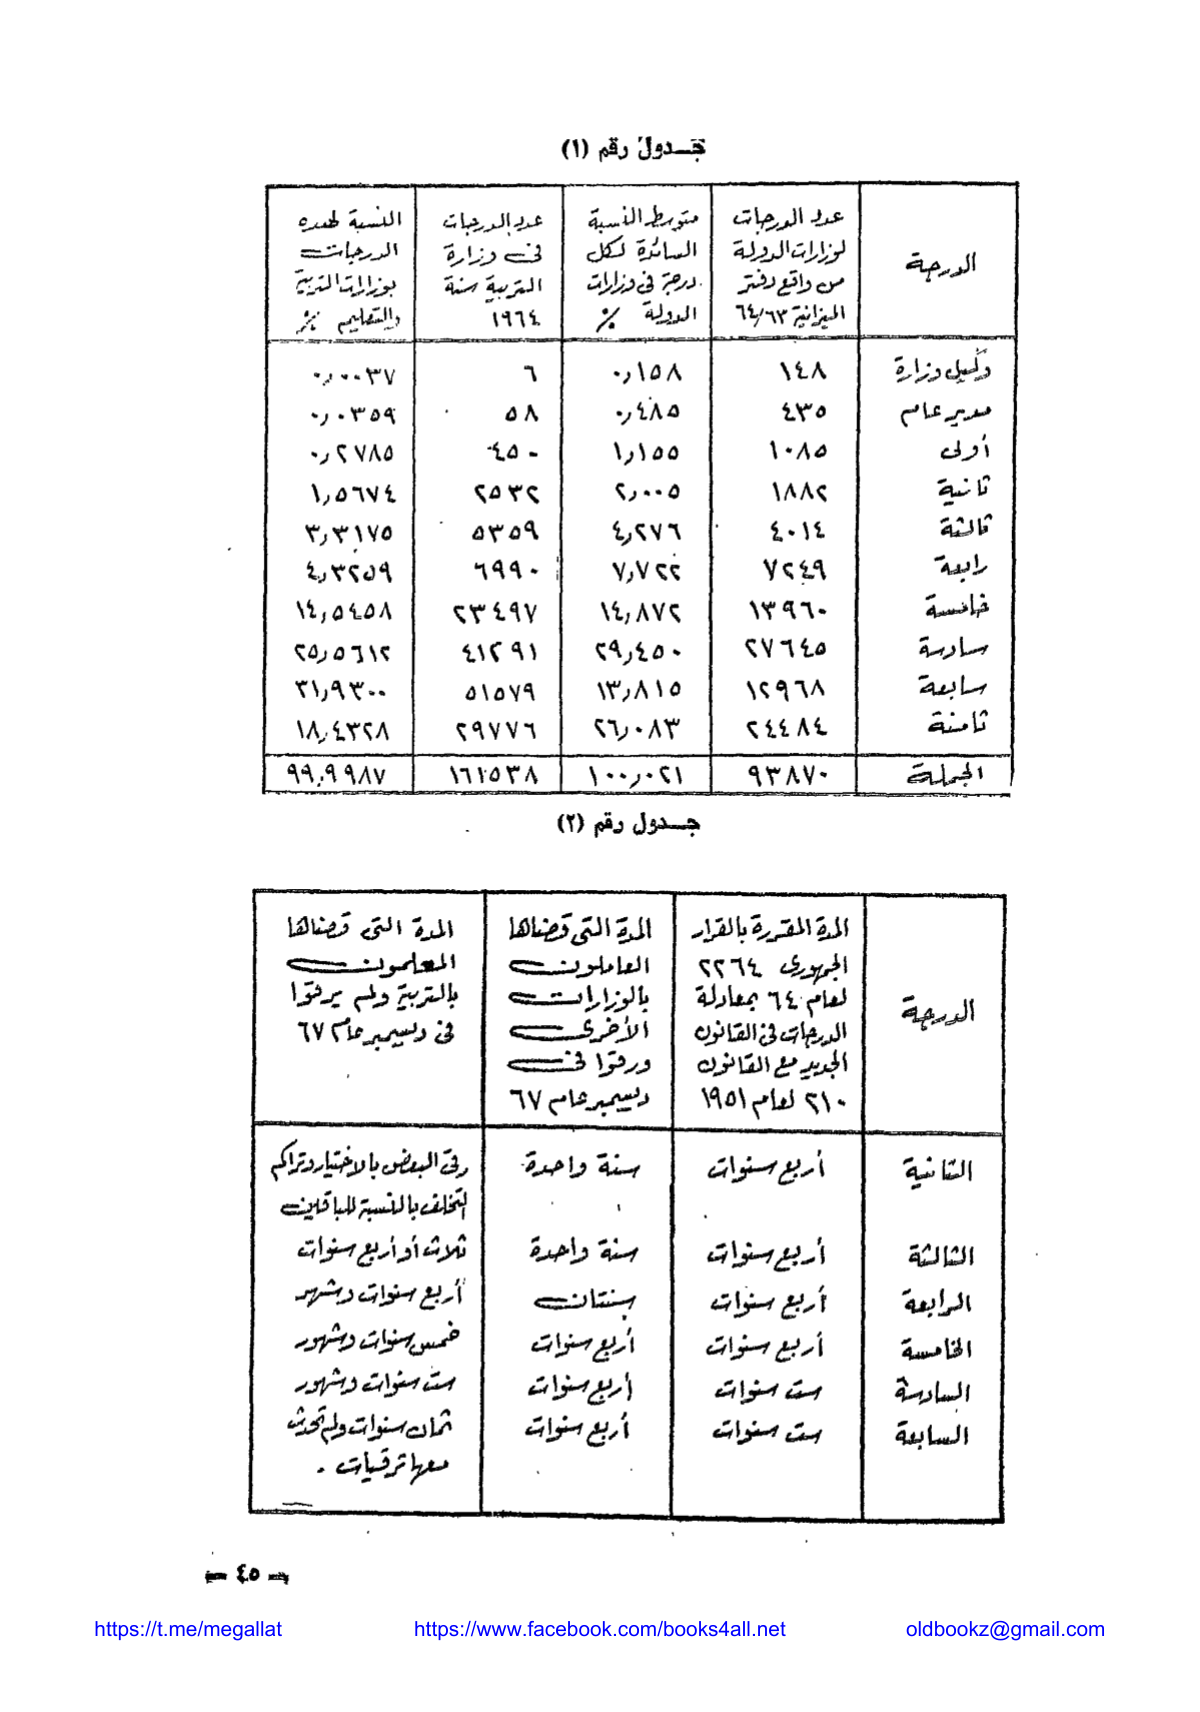 جدول رقم (١)
الدرجة | عدد الدرجات لوزارات الدولة من واقع دفتر الميزانية ٦٤/٦٣ | متوسط النسبة السائدة لكل درجة فى وزارات الدولة % | عدد الدرجات فى وزارة التربية سنة ١٩٦٤ | النسبة لهذه الدرجات بوزارات التربية والتعليم %
وكيل وزارة | ١٤٨ | ٠,١٥٨ | ٦ | ٠,٠٠٣٧
مدير عام | ٤٣٥ | ٠,٤٨٥ | ٥٨ | ٠,٠٣٥٩
أولى | ١٠٨٥ | ١,١٥٥ | ٤٥٠ | ٠,٢٧٨٥
ثانية | ١٨٨٢ | ٢,٠٠٥ | ٢٥٣٢ | ١,٥٦٧٤
ثالثة | ٤٠١٤ | ٤,٢٧٦ | ٥٣٥٩ | ٣,٣١٧٥
رابعة | ٧٢٤٩ | ٧,٧٢٢ | ٦٩٩٠ | ٤,٣٢٥٩
خامسة | ١٣٩٦٠ | ١٤,٨٧٢ | ٢٣٤٩٧ | ١٤,٥٤٥٨
سادسة | ٢٧٦٤٥ | ٢٩,٤٥٠ | ٤١٢٩١ | ٢٥,٥٦١٢
سابعة | ١٢٩٦٨ | ١٣,٨١٥ | ٥١٥٧٩ | ٣١,٩٣٠٠
ثامنة | ٢٤٤٨٤ | ٢٦,٠٨٣ | ٢٩٧٧٦ | ١٨,٤٣٢٨
الجملة | ٩٣٨٧٠ | ١٠٠,٠٢١ | ١٦١٥٣٨ | ٩٩,٩٩٨٧
جدول رقم (٢)
الدرجة | المدة المقررة بالقرار الجمهورى ٢٢٦٤ لعام ٦٤ بمعادلة الدرجات فى القانون الجديد مع القانون ٢١٠ لعام ١٩٥١ | المدة التى قضاها العاملون بالوزارات الأخرى ورقوا فى ديسمبر عام ٦٧ | المدة التى قضاها المعلمون بالتربية ولم يرقوا فى ديسمبر عام ٦٧
الثانية | أربع سنوات | سنة واحدة | رقى البعض بالاختيار وتراكم التخلف بالنسبة للباقين
الثالثة | أربع سنوات | سنة واحدة | ثلاث أو أربع سنوات
الرابعة | أربع سنوات | سنتان | أربع سنوات وشهر
الخامسة | أربع سنوات | أربع سنوات | خمس سنوات وشهور
السادسة | ست سنوات | أربع سنوات | ست سنوات وشهور
السابعة | ست سنوات | أربع سنوات | ثمان سنوات ولم تحدث معها ترقيات .
— ٤٥ —
https://t.me/megallat https://www.facebook.com/books4all.net oldbookz@gmail.com